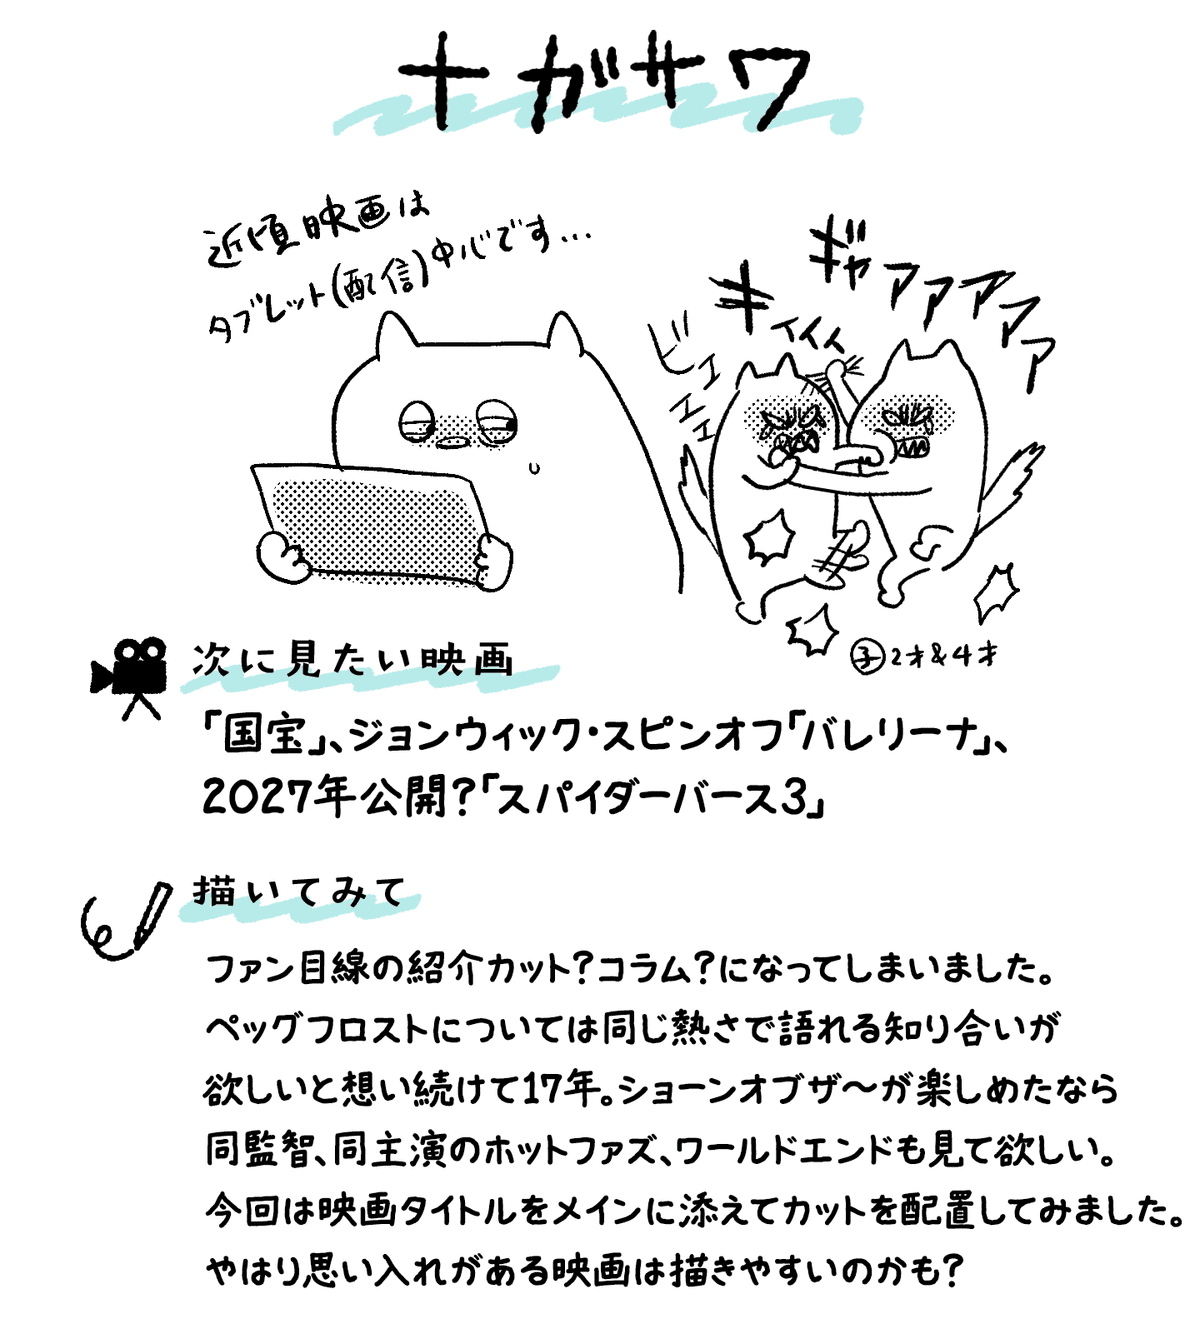 ナガサワ
近頃映画は
タブレット(配信)中心です…
ギャアアアアア
キィイイイ
ビエエエエ
子2才&4才
次に見たい映画
「国宝」、ジョンウィック・スピンオフ「バレリーナ」、
2027年公開?「スパイダーバース3」
描いてみて
ファン目線の紹介カット?コラム?になってしまいました。
ペッグフロストについては同じ熱さで語れる知り合いが
欲しいと想い続けて17年。ショーンオブザ〜が楽しめたなら
同監智、同主演のホットファズ、ワールドエンドも見て欲しい。
今回は映画タイトルをメインに添えてカットを配置してみました。
やはり思い入れがある映画は描きやすいのかも?